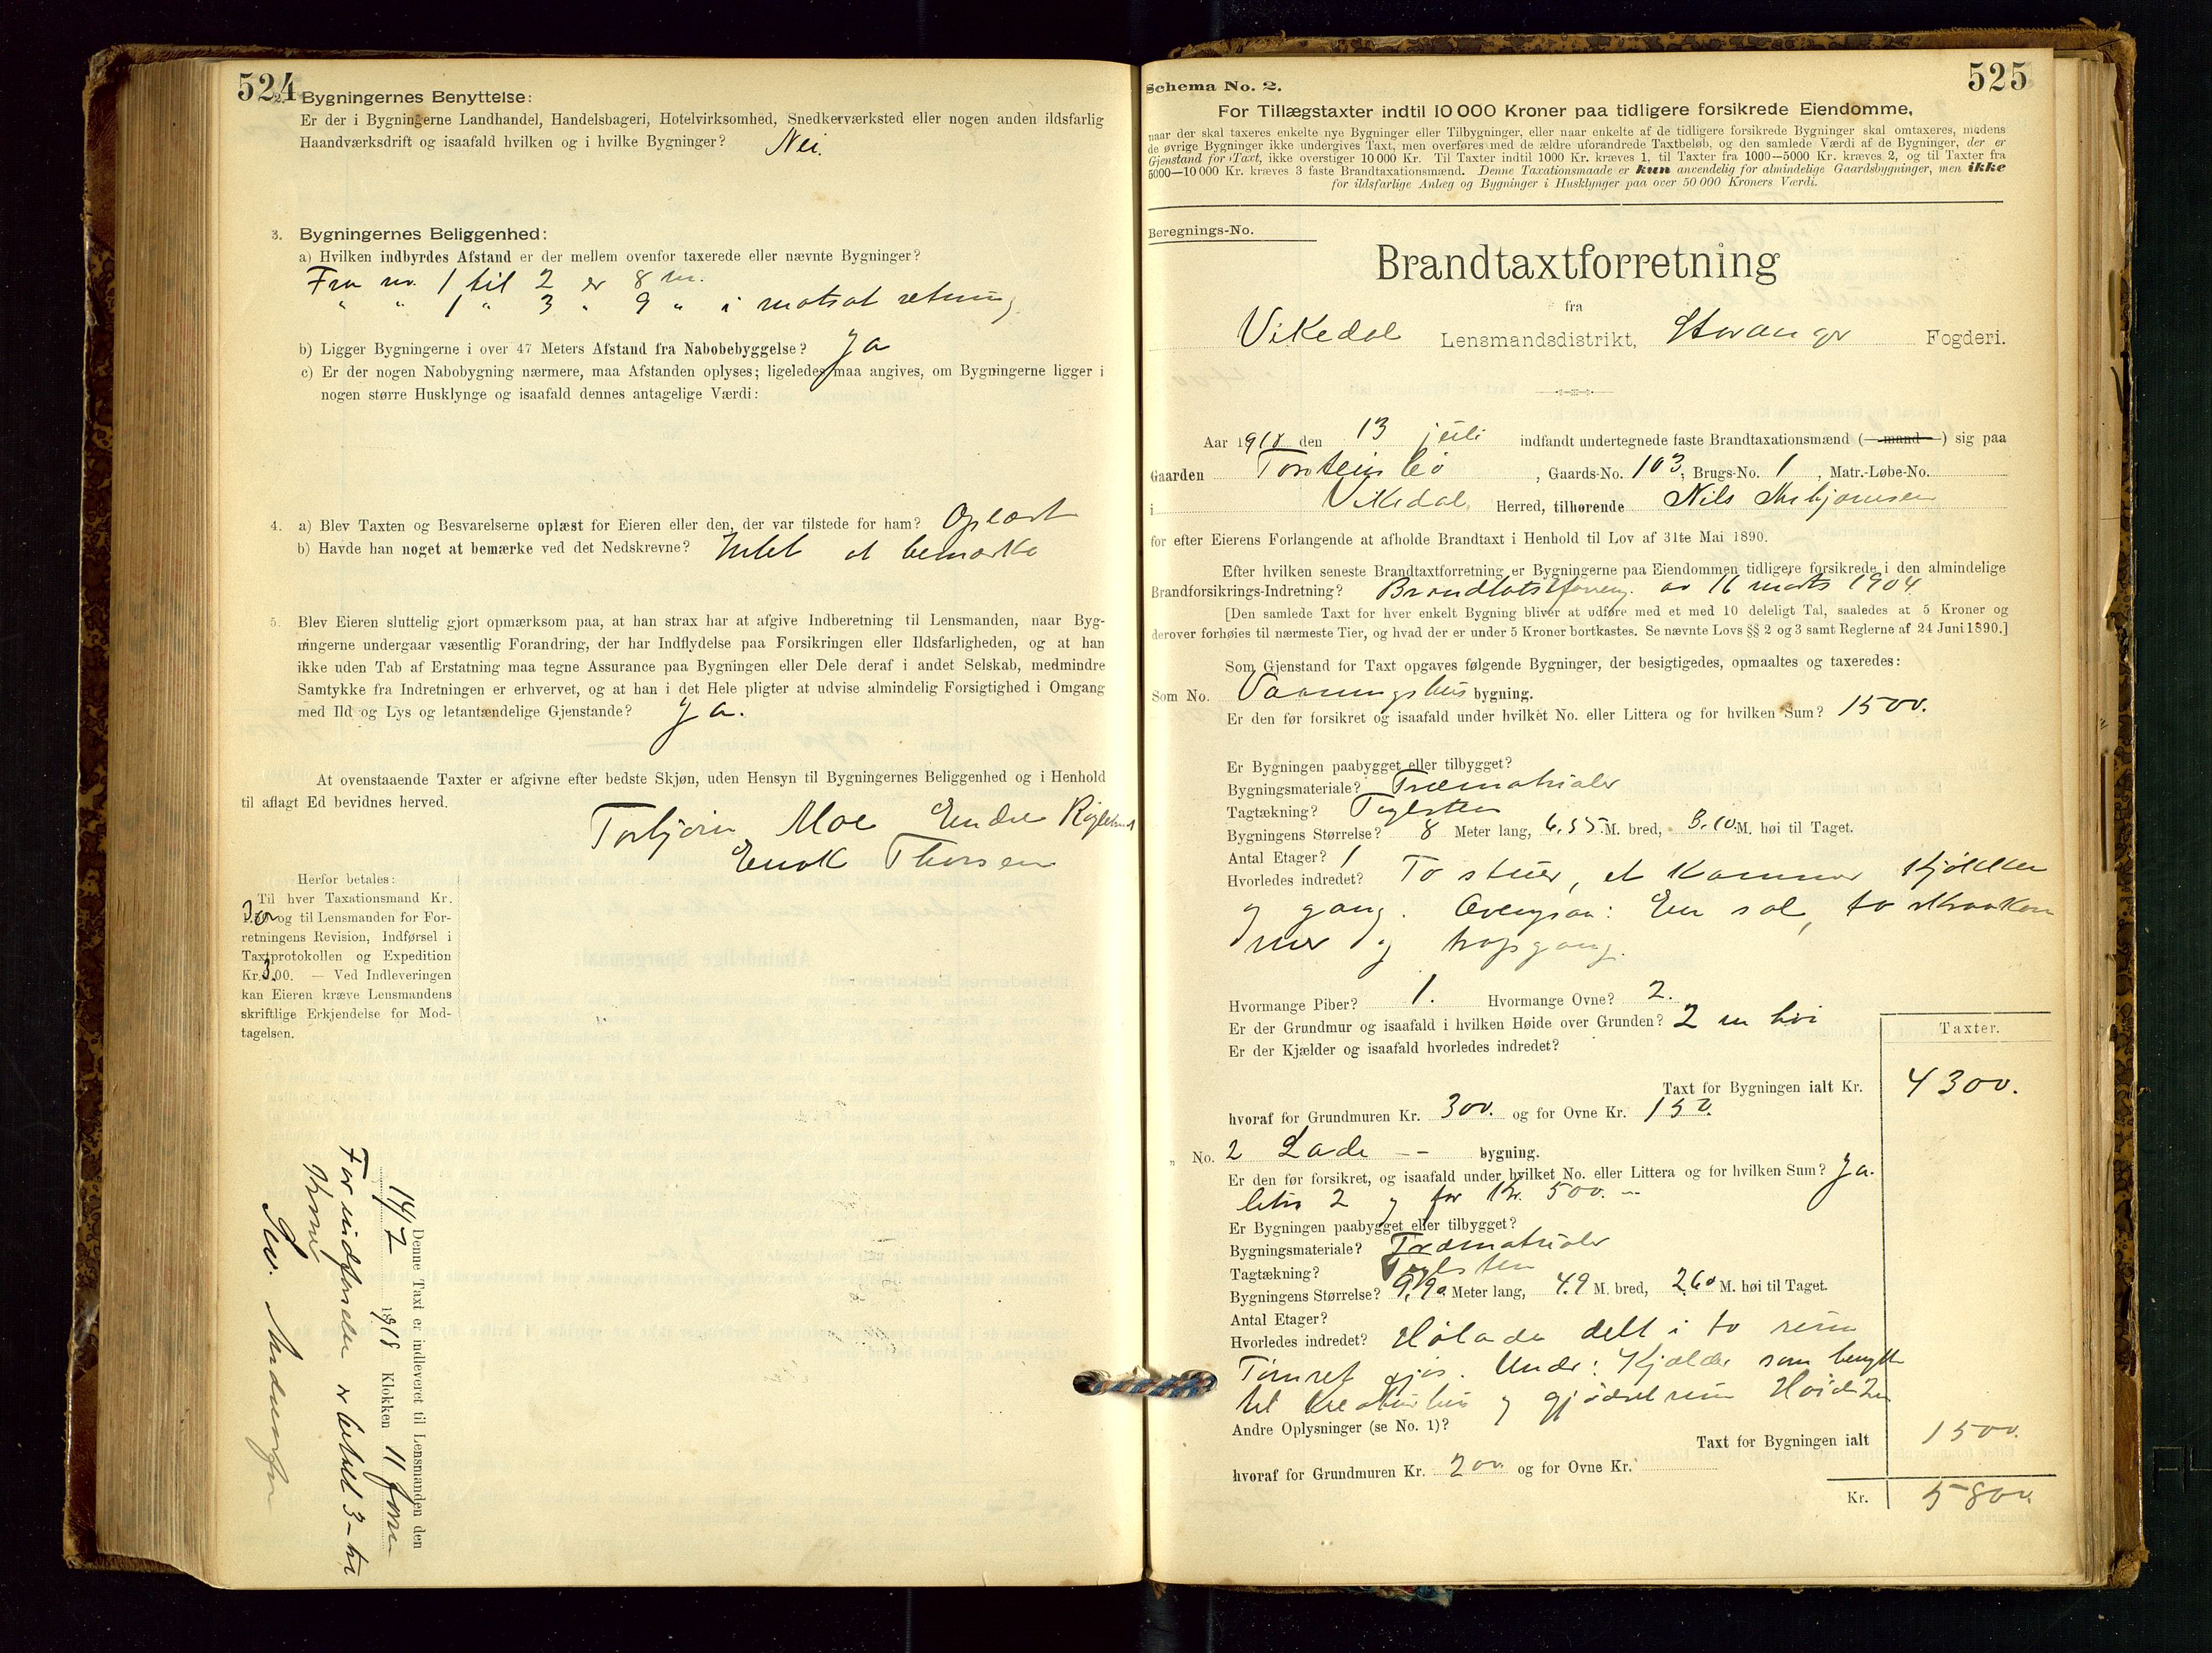 524
2. Bygningernes Benyttelse:
Er der i Bygningerne Landhandel, Handelsbageri, Hotelvirksomhed, Snedkerværksted eller nogen anden ildsfarlig
Haandværksdrift og isaafald hvilken og i hvilke Bygninger? Nei.
3. Bygningernes Beliggenhed:
a) Hvilken indbyrdes Afstand er der mellem ovenfor taxerede eller nævnte Bygninger?
Fra nr. 1 til 2 er 8 m.
" " 1 " 3 " 9 " i motsat retning
b) Ligger Bygningerne i over 47 Meters Afstand fra Nabobebyggelse? Ja
c) Er der nogen Nabobygning nærmere, maa Afstanden oplyses; ligeledes maa angives, om Bygningerne ligger i
nogen større Husklynge og isaafald dennes antagelige Værdi:
4. a) Blev Taxten og Besvarelserne oplæst for Eieren eller den, der var tilstede for ham? Oplæst
b) Havde han noget at bemærke ved det Nedskrevne? Intet at bemærke
5. Blev Eieren sluttelig gjort opmærksom paa, at han strax har at afgive Indberetning til Lensmanden, naar Byg-
ningerne undergaar væsentlig Forandring, der har Indflydelse paa Forsikringen eller Ildsfarligheden, og at han
ikke uden Tab af Erstatning maa tegne Assurance paa Bygningen eller Dele deraf i andet Selskab, medmindre
Samtykke fra Indretningen er erhvervet, og at han i det Hele pligter at udvise almindelig Forsigtighed i Omgang
med Ild og Lys og letantændelige Gjenstande? Ja.
At ovenstaaende Taxter er afgivne efter bedste Skjøn, uden Hensyn til Bygningernes Beliggenhed og i Henhold
til aflagt Ed bevidnes herved.
Torbjørn Moe Endre
Enok Thorsen
Herfor betales:
Til hver Taxationsmand Kr.
og til Lensmanden for For-
retningens Revision, Indførsel i
Taxtprotokollen og Expedition
Kr. 3.00. — Ved Indleveringen
kan Eieren kræve Lensmandens
skriftlige Erkjendelse for Mod-
tagelsen.
Denne Taxt er indleveret til Lensmanden den
14/7 1918 Klokken 11 form
For indførselen er betalt 3 - tre
Kroner
525
Schema No. 2.
For Tillægstaxter indtil 10 000 Kroner paa tidligere forsikrede Eiendomme,
naar der skal taxeres enkelte nye Bygninger eller Tilbygninger, eller naar enkelte af de tidligere forsikrede Bygninger skal omtaxeres, medens
de øvrige Bygninger ikke undergives Taxt, men overføres med de ældre uforandrede Taxtbeløb, og den samlede Værdi af de Bygninger, der er
Gjenstand for Taxt, ikke overstiger 10 000 Kr. Til Taxter indtil 1000 Kr. kræves 1, til Taxter fra 1000—5000 Kr. kræves 2, og til Taxter fra
5000—10 000 Kr. kræves 3 faste Brandtaxationsmænd. Denne Taxationsmaade er kun anvendelig for almindelige Gaardsbygninger, men ikke
for ildsfarlige Anlæg og Bygninger i Husklynger paa over 50 000 Kroners Værdi.
Beregnings-No.
Brandtaxtforretning
fra
Vikedal Lensmandsdistrikt, Stavanger Fogderi.
Aar 1918 den 13 juli indfandt undertegnede faste Brandtaxationsmænd (mand) sig paa
Gaarden , Gaards-No. 103, Brugs-No. 1, Matr.-Løbe-No.
i Vikedal Herred, tilhørende Nils
for efter Eierens Forlangende at afholde Brandtaxt i Henhold til Lov af 31te Mai 1890.
Efter hvilken seneste Brandtaxtforretning er Bygningerne paa Eiendommen tidligere forsikrede i den almindelige
Brandforsikrings-Indretning? av 16 marts 1904
[Den samlede Taxt for hver enkelt Bygning bliver at udføre med et med 10 deleligt Tal, saaledes at 5 Kroner og
derover forhøies til nærmeste Tier, og hvad der er under 5 Kroner bortkastes. Se nævnte Lovs §§ 2 og 3 samt Reglerne af 24 Juni 1890.]
Som Gjenstand for Taxt opgaves følgende Bygninger, der besigtigedes, opmaaltes og taxeredes:
Som No. Vaaningshus bygning.
Er den før forsikret og isaafald under hvilket No. eller Littera og for hvilken Sum? 1500.
Er Bygningen paabygget eller tilbygget?
Bygningsmateriale? Træmaterialer
Tagtækning? Teglsten
Bygningens Størrelse? 8 Meter lang, 6.55 M. bred, 3.10 M. høi til Taget.
Antal Etager? 1
Hvorledes indredet? To stuer, et kammer kjøkken
og gang. Ovenpaa: En sal, to skraakam
mer og trapgang.
Hvormange Piber? 1. Hvormange Ovne? 2.
Er der Grundmur og isaafald i hvilken Høide over Grunden? 2 m høi
Er der Kjælder og isaafald hvorledes indredet?
Taxter.
Taxt for Bygningen ialt Kr. 4300.
hvoraf for Grundmuren Kr. 300. og for Ovne Kr. 150.
" No. 2 Lade -- bygning.
Er den før forsikret, og isaafald under hvilket No. eller Littera og for hvilken Sum? Ja.
litra 2 og for Kr. 500. -
Er Bygningen paabygget eller tilbygget?
Bygningsmateriale? Træmaterialer
Tagtækning? Teglsten
Bygningens Størrelse? 9,90 Meter lang, 4.9 M. bred, 2.60 M. høi til Taget.
Antal Etager?
Hvorledes indredet? Hølade delt i to rum
Tømret fjøs. Under: Kjælder som benyttes
til kreaturhus og gjødselrum Høide 2m
Andre Oplysninger (se No. 1)?
Taxt for Bygningen ialt 1500.
hvoraf for Grundmuren Kr. 200 og for Ovne Kr.
Kr. 5800.